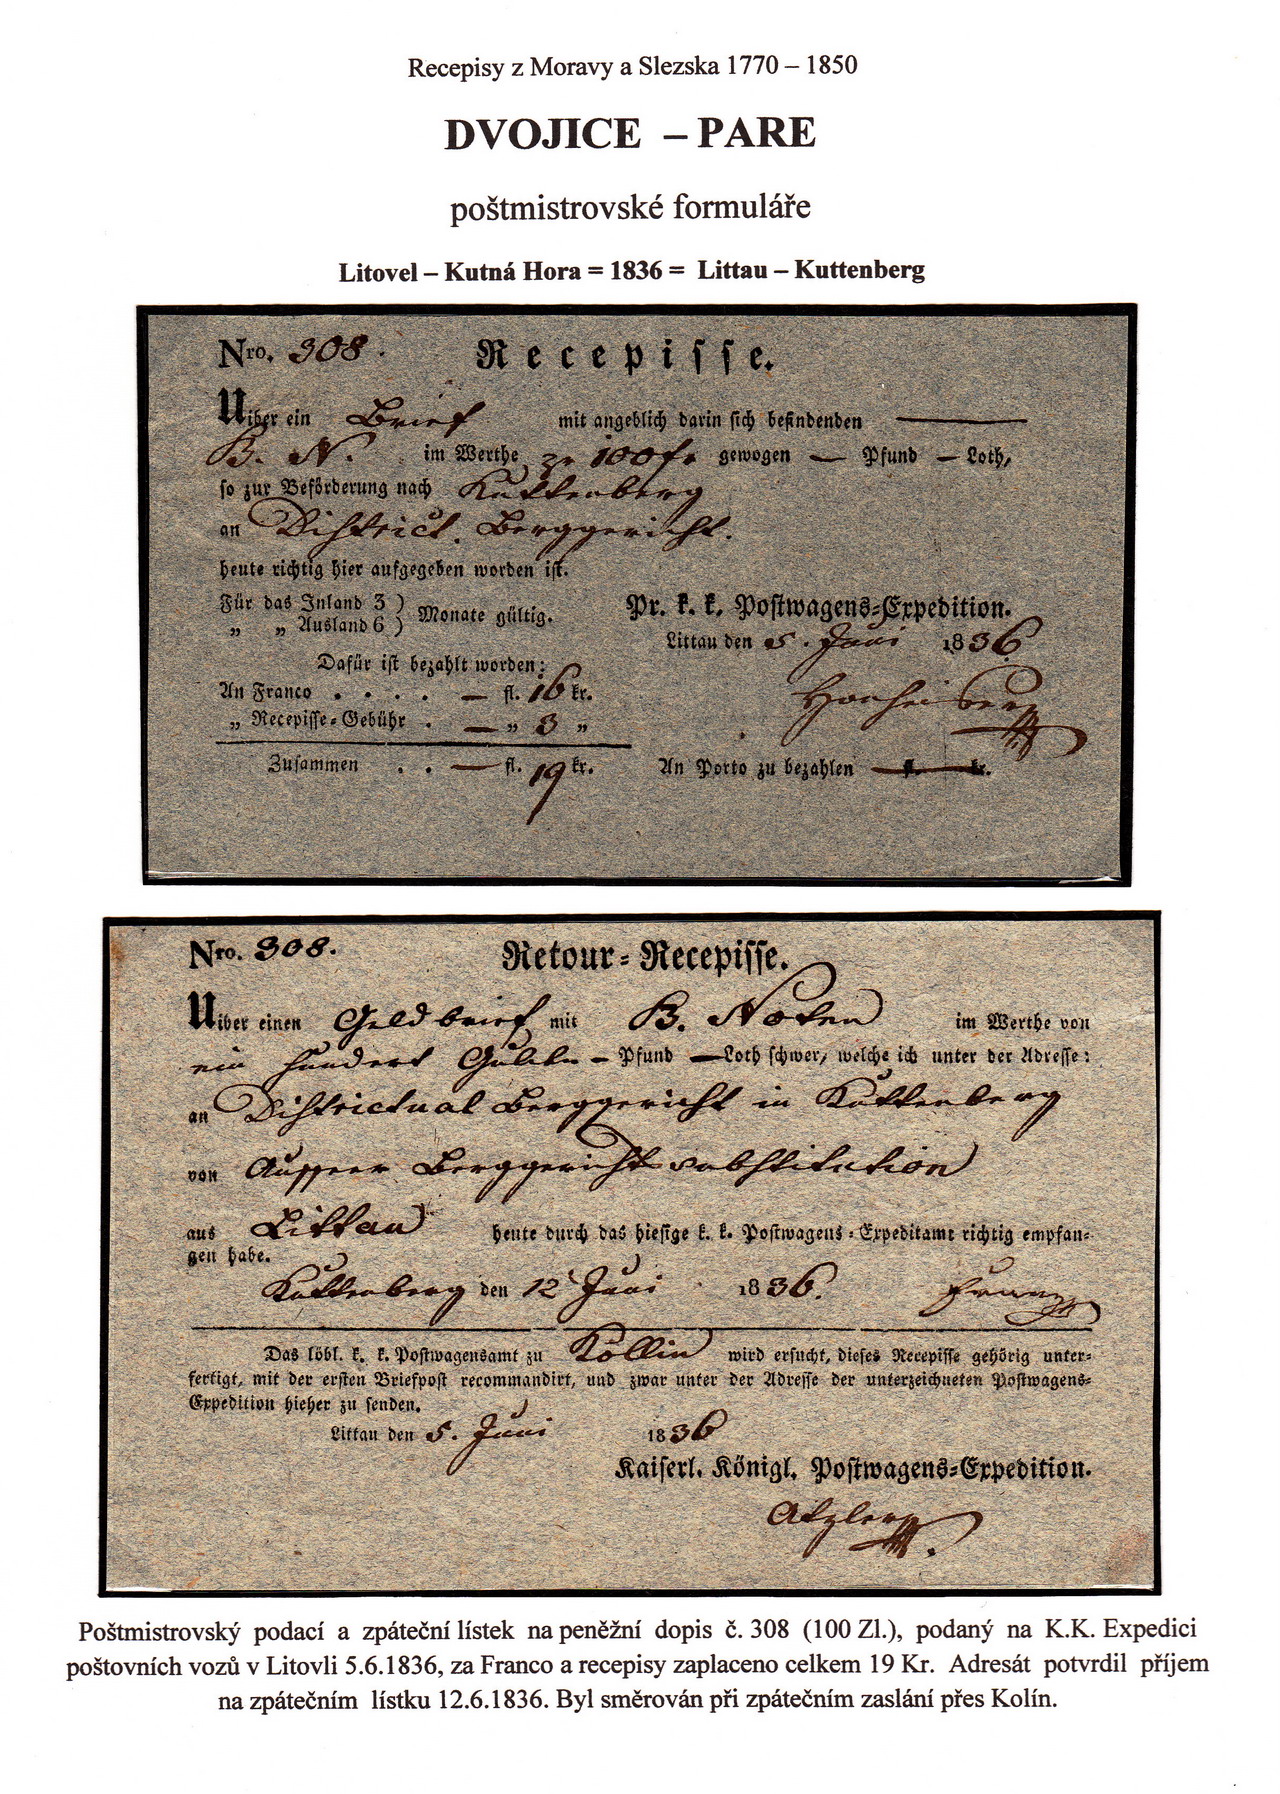 Recepisy z Moravy a Slezska 1770 – 1850
DVOJICE – PARE
poštmistrovské formuláře
Litovel – Kutná Hora = 1836 = Littau – Kuttenberg
Nro. 308. Recepisse.
Uiber ein Brief mit angeblich darin sich befindenden
B. N. im Werthe zu 100 fr gewogen — Pfund — Loth,
so zur Beförderung nach Kuttenberg
an District. Berggericht.
heute richtig hier aufgegeben worden ist.
Für das Inland 3 ) Monate gültig.
„ „ Ausland 6 )
Pr. k. k. Postwagens=Expedition.
Littau den 5. Juni 1836
Dafür ist bezahlt worden:
An Franco . . . . — fl. 16 kr.
„ Recepisse=Gebühr . — „ 3 „
Zusammen . . — fl. 19 kr. An Porto zu bezahlen — fl. — kr.
Nro. 308. Retour=Recepisse.
Uiber einen Geldbrief mit B. Noten im Werthe von
ein hundert Gulden – Pfund — Loth schwer, welche ich unter der Adresse:
an Districtual Berggericht in Kuttenberg
von Ausseer Berggerichtssubstitution
aus Littau heute durch das hiesige k. k. Postwagens=Expeditamt richtig empfan=
gen habe.
Kuttenberg den 12 Juni 1836.
Das löbl. k. k. Postwagensamt zu Kollin wird ersucht, dieses Recepisse gehörig unter=
fertigt, mit der ersten Briefpost recommandirt, und zwar unter der Adresse der unterzeichneten Postwagens=
Expedition hieher zu senden.
Littau den 5. Juni 1836
Kaiserl. Königl. Postwagens=Expedition.
Atzler
Poštmistrovský podací a zpáteční lístek na peněžní dopis č. 308 (100 Zl.), podaný na K.K. Expedici
poštovních vozů v Litovli 5.6.1836, za Franco a recepisy zaplaceno celkem 19 Kr. Adresát potvrdil příjem
na zpátečním lístku 12.6.1836. Byl směrován při zpátečním zaslání přes Kolín.